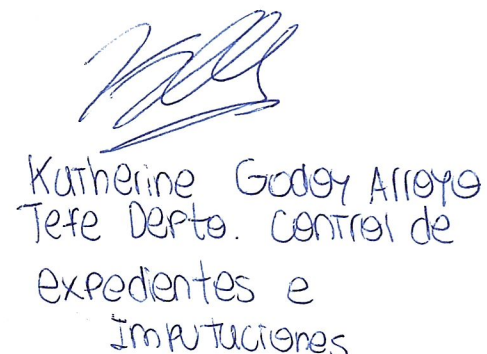 Katherine Godoy Arroyo
Jefe Depto. Control de
expedientes e
Imputaciones